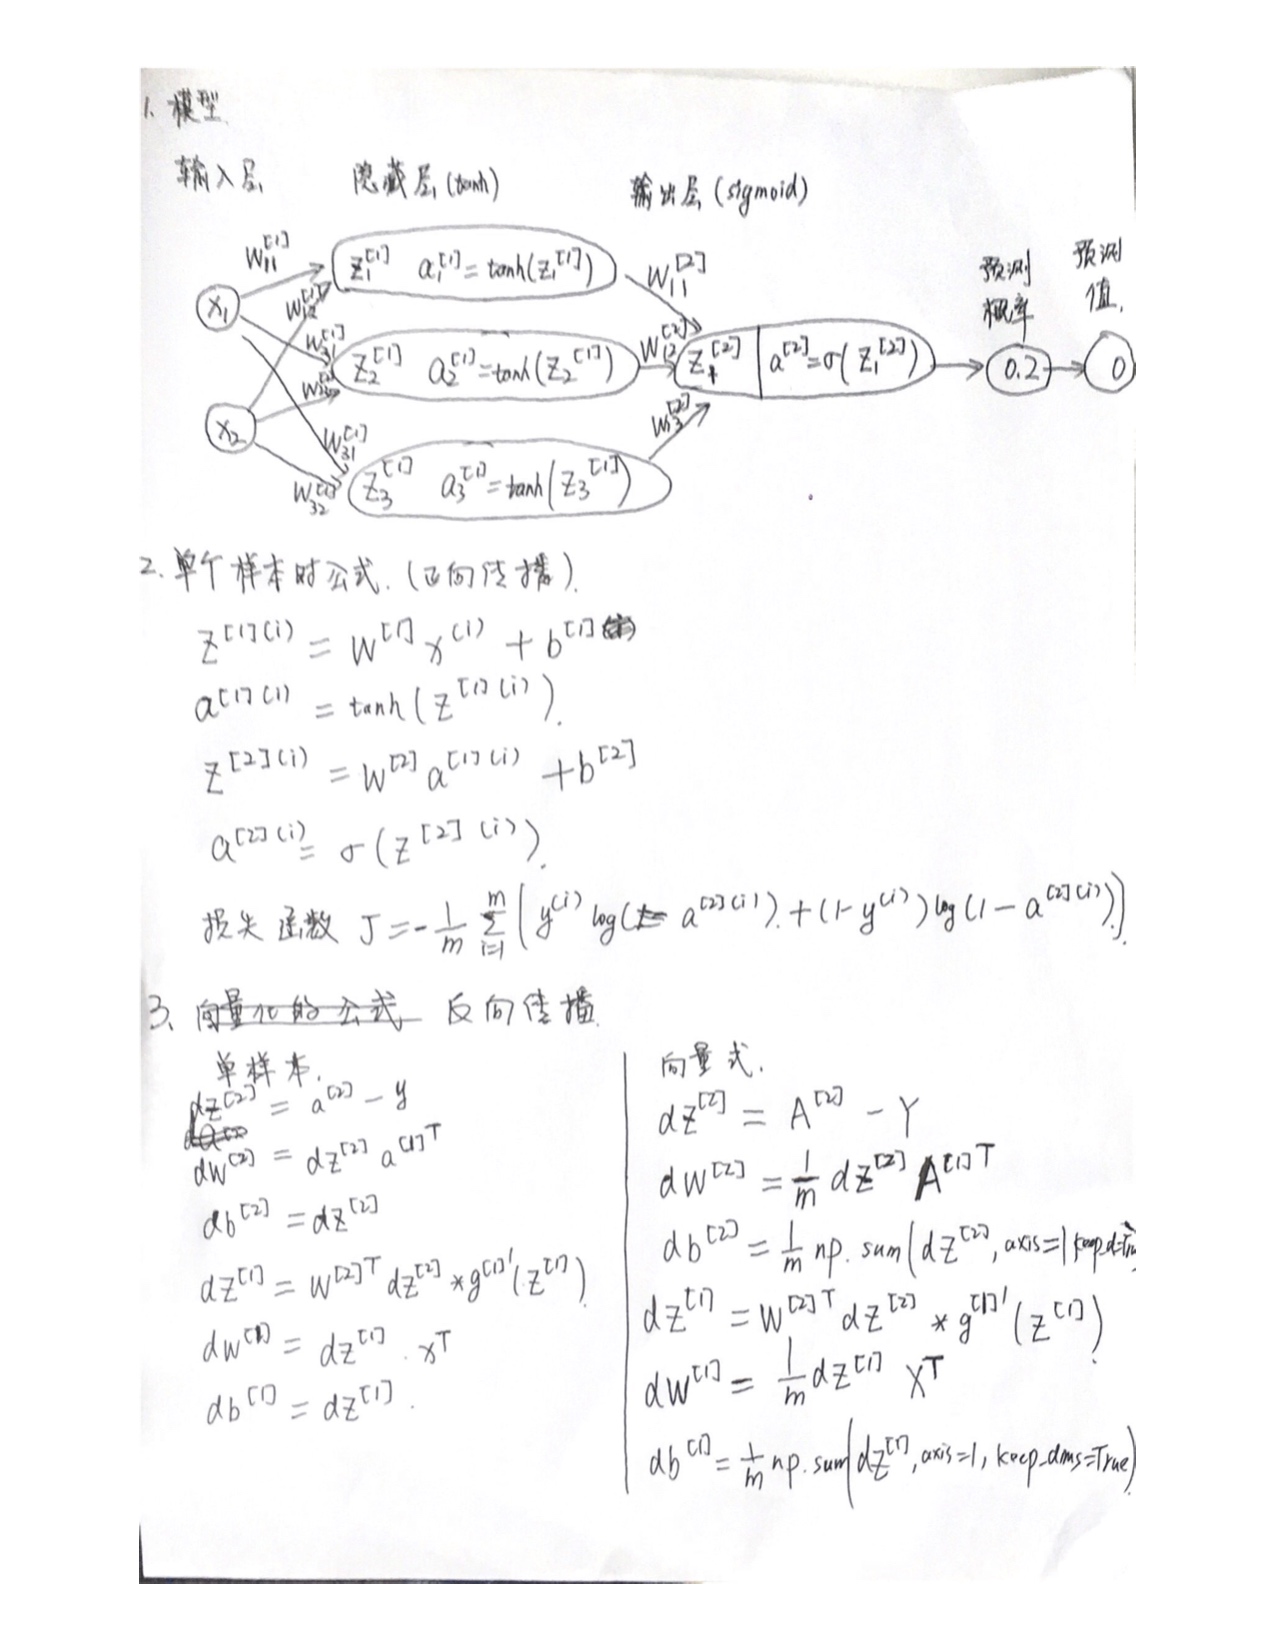 1. 模型
输入层 隐藏层(tanh) 输出层(sigmoid)
预测概率 预测值.
x₁ W₁₁^[1] W₁₂^[1] z₁^[1] a₁^[1]=tanh(z₁^[1]) W₁₁^[2]
W₃₁^[1] z₂^[1] a₂^[1]=tanh(z₂^[1]) W₁₂^[2] z₁^[2] a^[2]=σ(z₁^[2]) 0.2 0
x₂ W₃₁^[1] W₃₂^[1] z₃^[1] a₃^[1]=tanh(z₃^[1])
2. 单个样本时公式.(正向传播).
z^[1](i) = W^[1] x^(i) + b^[1]
a^[1](i) = tanh(z^[1](i)).
z^[2](i) = W^[2] a^[1](i) + b^[2]
a^[2](i) = σ(z^[2](i)).
损失函数 J = -1/m Σ_{i=1}^m (y^(i) log(a^[2](i)) + (1-y^(i)) log(1-a^[2](i))).
3、向量化的公式 反向传播
单样本.
dz^[2] = a^[2] - y
dw^[2] = dz^[2] a^[1]T
db^[2] = dz^[2]
dz^[1] = W^[2]T dz^[2] * g^[1]'(z^[1])
dw^[1] = dz^[1] . x^T
db^[1] = dz^[1] .
向量式.
dz^[2] = A^[2] - Y
dw^[2] = 1/m dz^[2] A^[1]T
db^[2] = 1/m np.sum(dz^[2], axis=1
dz^[1] = W^[2]T dz^[2] * g^[1]'(z^[1]).
dw^[1] = 1/m dz^[1] X^T
db^[1] = 1/m np.sum(dz^[1], axis=1, keep_dms=True).